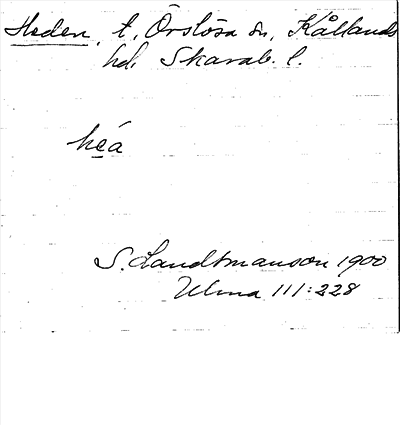 Heden, t. Örslösa sn, Kållands
hd. Skarab. l.
heá
S. Landtmanson 1900
Ulma 111:228